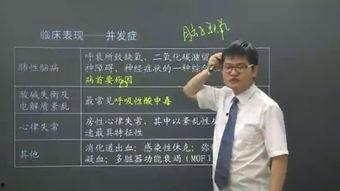 临床表现——并发症
脑子缺氧
肺性脑病
呼衰所致缺氧、二氧化碳潴留
神障碍、神经症状的一种综
病首要死因
酸碱失衡及
电解质紊乱
最常见呼吸性酸中毒
心律失常
房性心律失常，其中以紊乱性
速最具特征性
其他
消化道出血；感染性休克；弥
凝血；多脏器功能衰竭（MOF）